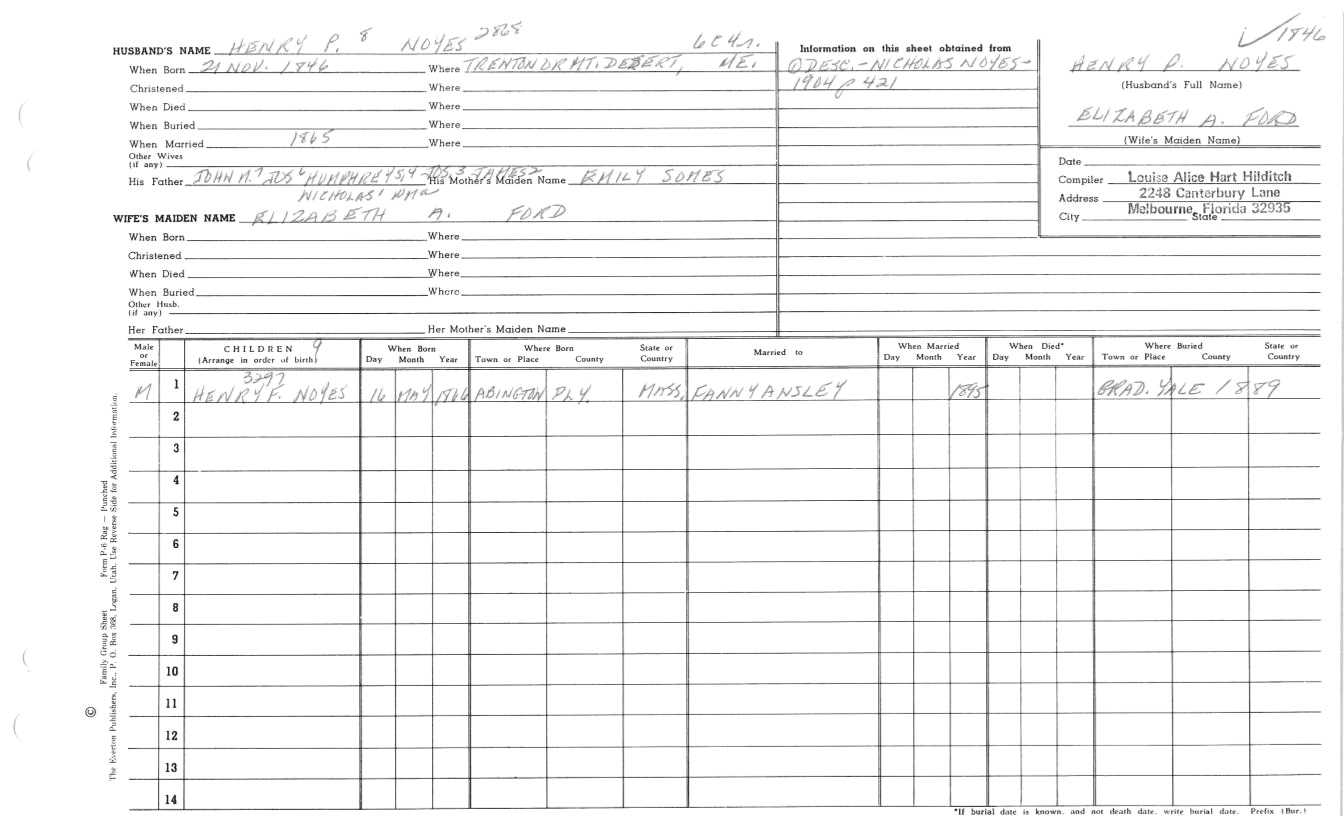 HUSBAND'S NAME HENRY P. 8 NOYES 2868
When Born 21 NOV. 1846 Where TRENTON OR MT. DESERT, ME.
Christened Where
When Died Where
When Buried Where
When Married 1865 Where
Other Wives
(if any)
His Father JOHN M.7 JOS6 HUMPHREY 5,4 JOS,3 JAMES2 His Mother's Maiden Name EMILY SOMES
NICHOLAS1
WIFE'S MAIDEN NAME ELIZABETH A. FORD
When Born Where
Christened Where
When Died Where
When Buried Where
Other Husb.
(if any)
Her Father Her Mother's Maiden Name
Information on this sheet obtained from
① DESC. - NICHOLAS NOYES -
1904 p 421
✓ 1846
HENRY P. NOYES
(Husband's Full Name)
ELIZABETH A. FORD
(Wife's Maiden Name)
Date
Compiler Louise Alice Hart Hilditch
Address 2248 Canterbury Lane
City Melbourne, Florida 32935 State
Male or Female CHILDREN 9 (Arrange in order of birth) When Born Day Month Year Where Born Town or Place County State or Country Married to When Married Day Month Year When Died* Day Month Year Where Buried Town or Place County State or Country
3297
M 1 HENRY F. NOYES 16 MAY 1866 ABINGTON PLY. MASS. FANNY ANSLEY 1895 GRAD. YALE 1889
2
3
4
5
6
7
8
9
10
11
12
13
14
*If burial date is known, and not death date, write burial date. Prefix (Bur.)
Family Group Sheet Form P-6 Rag — Punched
© The Everton Publishers, Inc., P. O. Box 368, Logan, Utah. Use Reverse Side for Additional Information.